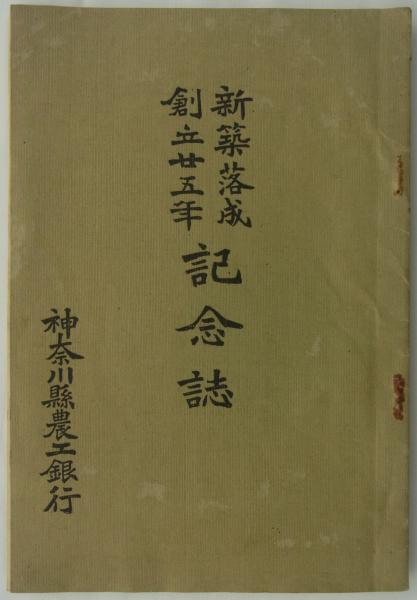 新築落成
創立廿五年
記念誌
神奈川縣農工銀行